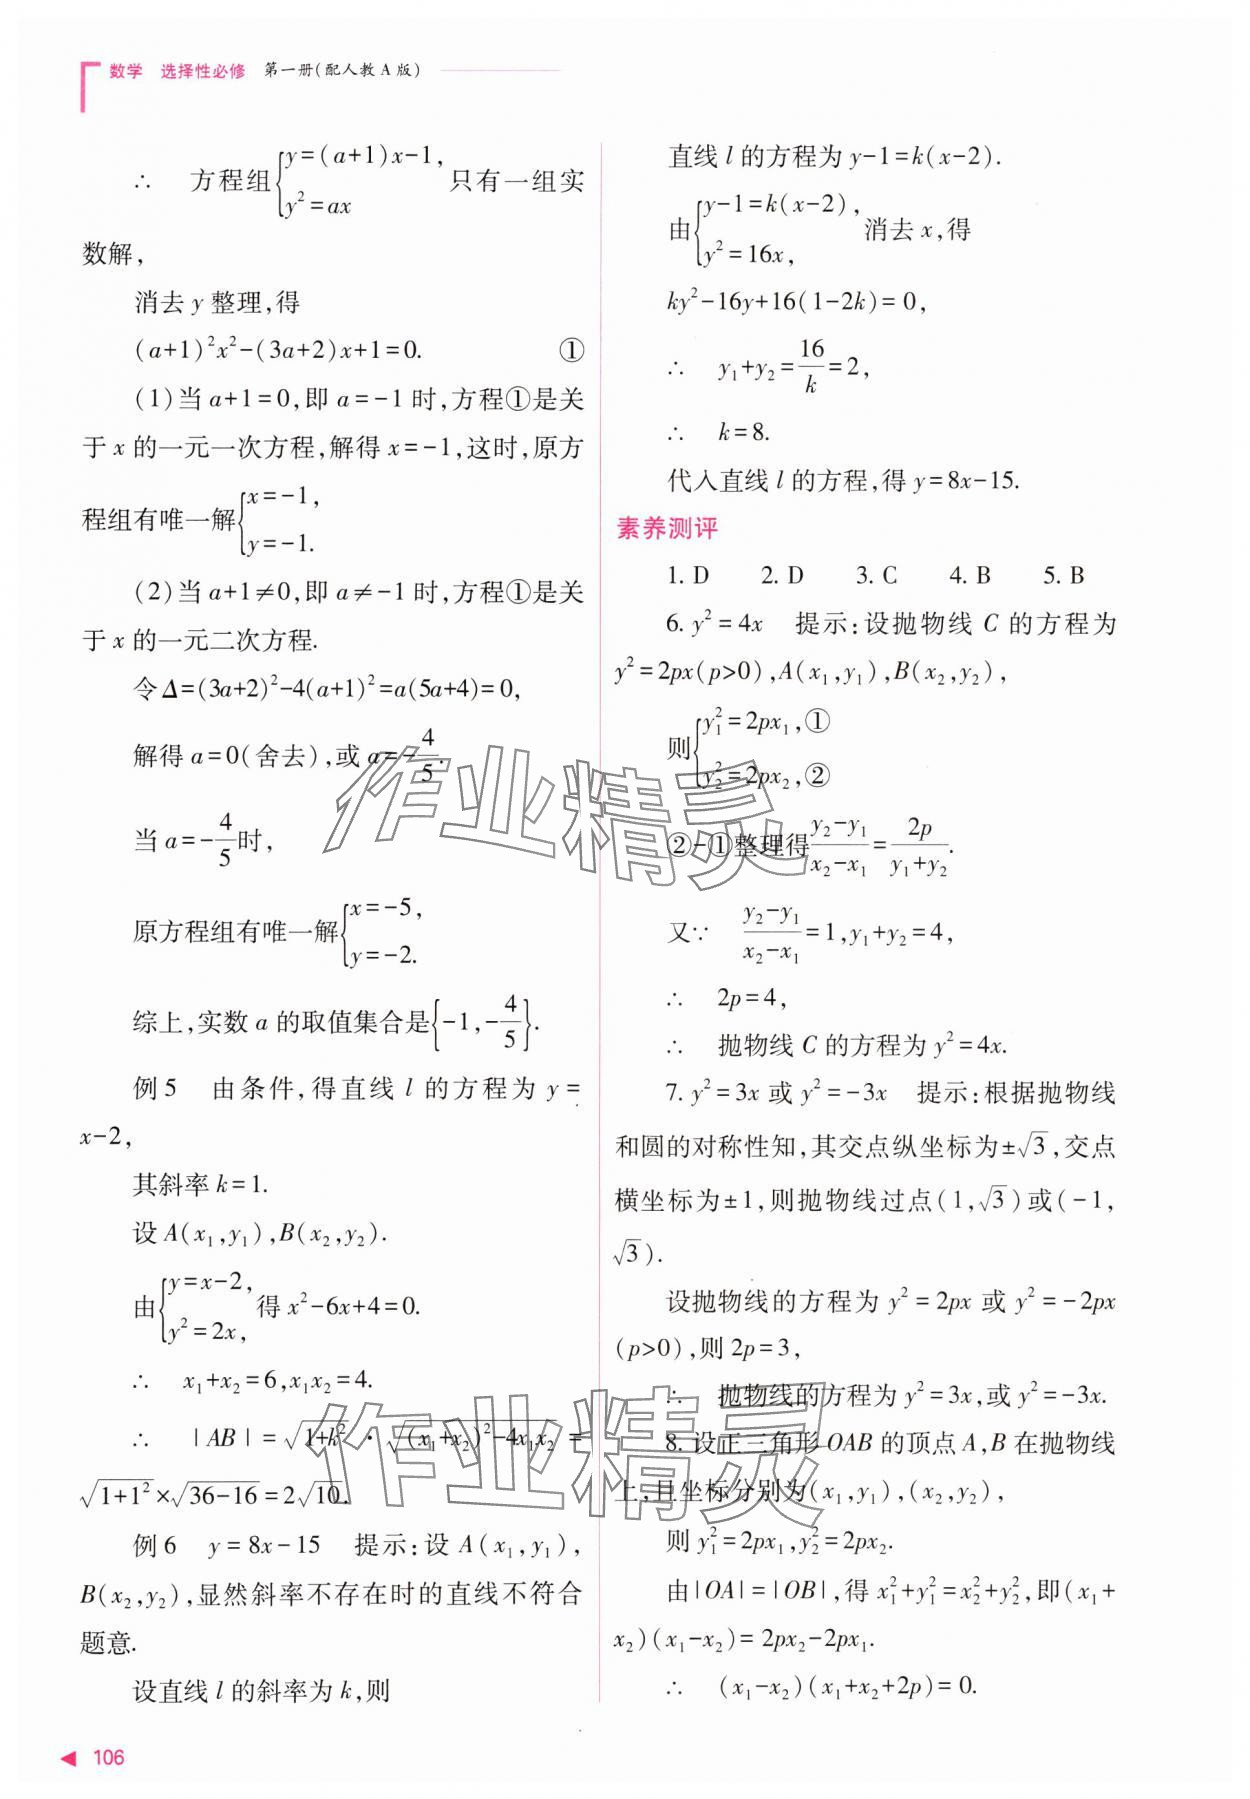 数学 选择性必修 第一册(配人教 A 版)
∴ 方程组{y=(a+1)x-1, y²=ax 只有一组实
数解,
消去 y 整理,得
(a+1)²x²-(3a+2)x+1=0. ①
(1)当 a+1=0,即 a=-1 时,方程①是关
于 x 的一元一次方程,解得 x=-1,这时,原方
程组有唯一解{x=-1, y=-1.
(2)当 a+1≠0,即 a≠-1 时,方程①是关
于 x 的一元二次方程.
令 Δ=(3a+2)²-4(a+1)²=a(5a+4)=0,
解得 a=0(舍去),或 a=-4/5.
当 a=-4/5时,
原方程组有唯一解{x=-5, y=-2.
综上,实数 a 的取值集合是{-1,-4/5}.
例 5 由条件,得直线 l 的方程为 y=
x-2,
其斜率 k=1.
设 A(x₁,y₁),B(x₂,y₂).
由{y=x-2, y²=2x, 得 x²-6x+4=0.
∴ x₁+x₂=6,x₁x₂=4.
∴ |AB|=√(1+k²)·√((x₁+x₂)²-4x₁x₂)=
√(1+1²)×√(36-16)=2√10.
例 6 y=8x-15 提示:设 A(x₁,y₁),
B(x₂,y₂),显然斜率不存在时的直线不符合
题意.
设直线 l 的斜率为 k,则
106
直线 l 的方程为 y-1=k(x-2).
由{y-1=k(x-2), y²=16x, 消去 x,得
ky²-16y+16(1-2k)=0,
∴ y₁+y₂=16/k=2,
∴ k=8.
代入直线 l 的方程,得 y=8x-15.
素养测评
1. D 2. D 3. C 4. B 5. B
6. y²=4x 提示:设抛物线 C 的方程为
y²=2px(p>0),A(x₁,y₁),B(x₂,y₂),
则{y₁²=2px₁,① y₂²=2px₂,②
②-①整理得(y₂-y₁)/(x₂-x₁)=2p/(y₁+y₂).
又∵ (y₂-y₁)/(x₂-x₁)=1,y₁+y₂=4,
∴ 2p=4,
∴ 抛物线 C 的方程为 y²=4x.
7. y²=3x 或 y²=-3x 提示:根据抛物线
和圆的对称性知,其交点纵坐标为±√3,交点
横坐标为±1,则抛物线过点(1,√3)或(-1,
√3).
设抛物线的方程为 y²=2px 或 y²=-2px
(p>0),则 2p=3,
∴ 抛物线的方程为 y²=3x,或 y²=-3x.
8. 设正三角形 OAB 的顶点 A,B 在抛物线
上,且坐标分别为(x₁,y₁),(x₂,y₂),
则 y₁²=2px₁,y₂²=2px₂.
由|OA|=|OB|,得 x₁²+y₁²=x₂²+y₂²,即(x₁+
x₂)(x₁-x₂)=2px₂-2px₁.
∴ (x₁-x₂)(x₁+x₂+2p)=0.
作业精灵
作业精灵